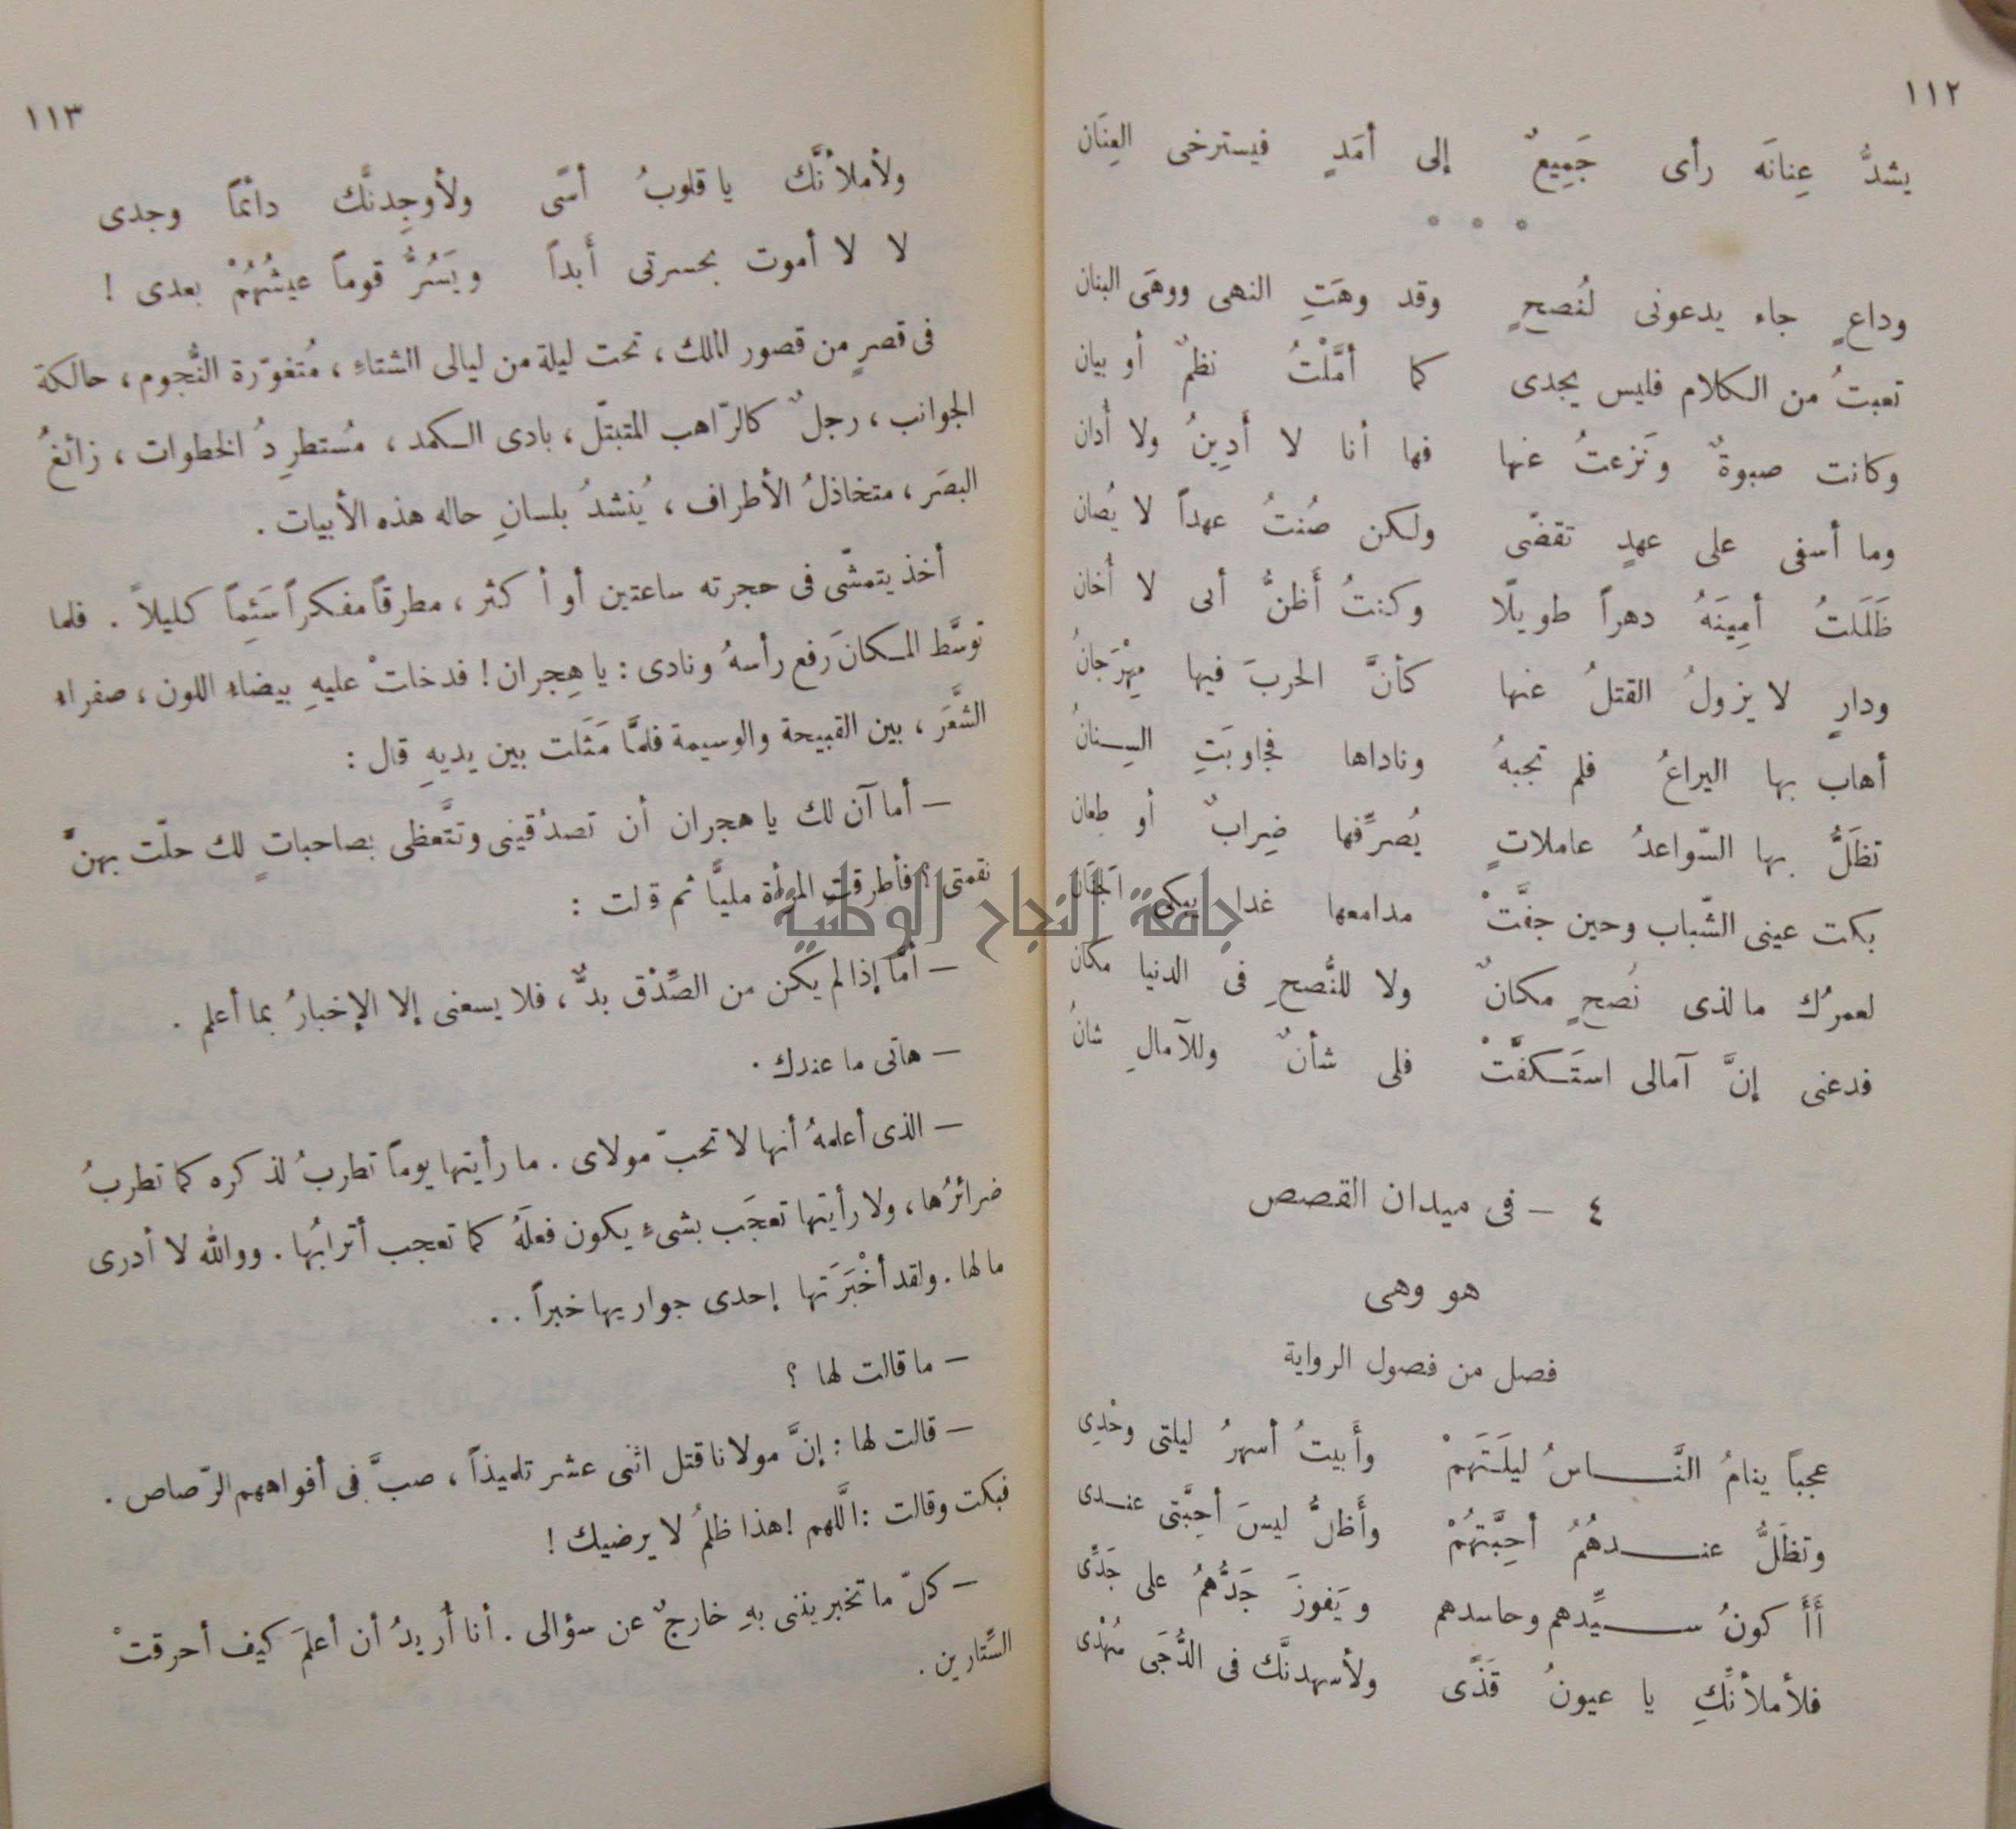 ١١٢
يشدُّ عِنانَه رأى جَمِيعٌ إلى أمَدٍ فيسترخى العِنَان
* * *
وداعٍ جاء يدعونى لنُصحٍ وقد وهَتِ النهى ووهَى البنان
تعبتُ من الكلام فليس يجدى كما أمَّلْتُ نظمٌ أو بيان
وكانت صبوةٌ ونَزعتُ عنها فما أنا لا أَدِينُ ولا أُدان
وما أسفى على عهدٍ تقضّى ولكن صُنتُ عهداً لا يُصان
ظَلَلتُ أمِينَهُ دهراً طويلًا وكنتُ أَظنُّ أنى لا أُخان
ودارٍ لا يزولُ القتلُ عنها كأنَّ الحربَ فيها مِهْرَجانُ
أهاب بها اليراعُ فلم تجبهُ وناداها فجاوبَتِ السِنانُ
تظَلُّ بها السّواعدُ عاملاتٍ يُصرِّفها ضِرابٌ أو طِعان
بكت عينى الشّباب وحين جفَّتْ مدامعها غدا يبكى الجَنَان
لعمرُك مالذى نُصحٍ مكانٌ ولا للنُّصحِ فى الدنيا مكان
فدعنى إنَّ آمالى استَكفَّتْ فلى شأنٌ وللآمالِ شانُ
٤ — فى ميدان القصص
هو وهى
فصل من فصول الرواية
عجباً ينامُ النَّاسُ ليلَتَهمْ وأَبيتُ أسهرُ ليلتى وحْدِى
وتظَلُّ عندهُمُ أحِبَّتهُمْ وأَظلُّ ليسَ أحِبَّتى عندى
أَأَكونُ سيِّدهم وحاسدهم ويَفوزَ جَدُّهمُ على جَدِّى
فلأملأنَّكِ يا عيونُ قَذًى ولأسهدنَّك فى الدُّجَى سُهْدى
١١٣
ولأملأنَّك يا قلوبُ أسًى ولأوجِدنَّك دائمًا وجدى
لا لا أموت بحسرتى أَبداً ويَسُرُّ قوماً عيشُهُمْ بعدى !
فى قصرٍ من قصور الملك ، تحت ليلة من ليالى الشتاءِ ، مُتغوّرة النُّجوم ، حالكة
الجوانب ، رجلٌ كالرّاهب المتبتّل ، بادى الكمد ، مُستطرِدُ الخطوات ، زائغُ
البصَر ، متخاذلُ الأطراف ، يُنشدُ بلسانِ حاله هذه الأبيات .
أخذ يتمشّى فى حجرته ساعتين أو أكثر ، مطرقاً مفكراً سَئِماً كليلاً . فلما
توسَّط المكانَ رَفع رأسهُ ونادى : يا هِجران ! فدخلتْ عليهِ بيضاء اللون ، صفراء
الشَّعَر ، بين القبيحة والوسيمة فلمَّا مَثَلت بين يديهِ قال :
— أما آن لك يا هجران أن تصدُقينى وتتَّعظى بصاحباتٍ لك حلّت بهنّ
نقمتى ؟ فأطرقت المرأة مليًّا ثم قالت :
— أمَّا إذا لم يكن من الصِّدْق بدٌّ ، فلا يسعنى إلا الإخبارُ بما أعلم .
— هاتى ما عندك .
— الذى أعلمهُ أنها لا تحبّ مولاى . ما رأيتها يوماً تطربُ لذكره كما تطربُ
ضرائرُها ، ولا رأيتها تعجَب بشىءٍ يكون فعلَهُ كما تعجب أترابُها . ووالله لا أدرى
مالها . ولقد أخْبَرَتها إحدى جواريها خبراً . .
— ما قالت لها ؟
— قالت لها : إنَّ مولانا قتل اثنى عشر تلميذاً ، صبَّ فى أفواههم الرّصاص .
فبكت وقالت : اللَّهم ! هذا ظلمُ لا يرضيك !
— كلّ ما تخبريننى بهِ خارجٌ عن سؤالى . أنا أُريدُ أن أعلمَ كيف أحرقتْ
السِّتارين .
جامعة النجاح الوطنية